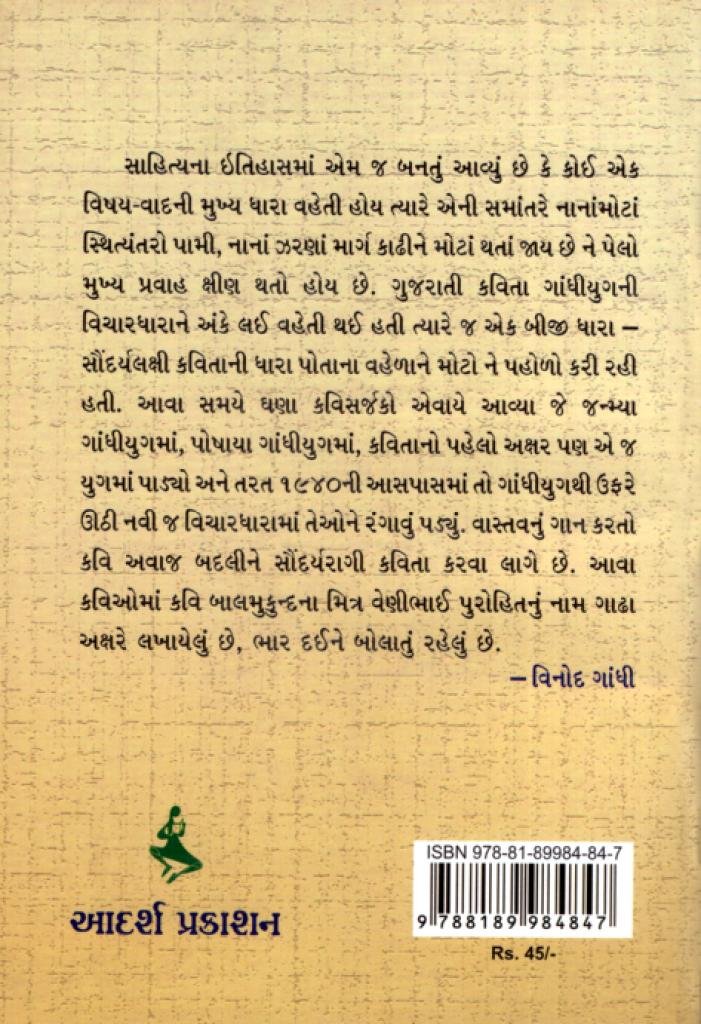 સાહિત્યના ઇતિહાસમાં એમ જ બનતું આવ્યું છે કે કોઈ એક
વિષય-વાદની મુખ્ય ધારા વહેતી હોય ત્યારે એની સમાંતરે નાનાંમોટાં
સ્થિત્યંતરો પામી, નાનાં ઝરણાં માર્ગ કાઢીને મોટાં થતાં જાય છે ને પેલો
મુખ્ય પ્રવાહ ક્ષીણ થતો હોય છે. ગુજરાતી કવિતા ગાંધીયુગની
વિચારધારાને અંકે લઈ વહેતી થઈ હતી ત્યારે જ એક બીજી ધારા –
સૌંદર્યલક્ષી કવિતાની ધારા પોતાના વહેળાને મોટો ને પહોળો કરી રહી
હતી. આવા સમયે ઘણા કવિસર્જકો એવાયે આવ્યા જે જન્મ્યા
ગાંધીયુગમાં, પોષાયા ગાંધીયુગમાં, કવિતાનો પહેલો અક્ષર પણ એ જ
યુગમાં પાડ્યો અને તરત ૧૯૪૦ની આસપાસમાં તો ગાંધીયુગથી ઉફરે
ઊઠી નવી જ વિચારધારામાં તેઓને રંગાવું પડ્યું. વાસ્તવનું ગાન કરતો
કવિ અવાજ બદલીને સૌંદર્યરાગી કવિતા કરવા લાગે છે. આવા
કવિઓમાં કવિ બાલમુકુન્દના મિત્ર વેણીભાઈ પુરોહિતનું નામ ગાઢા
અક્ષરે લખાયેલું છે, ભાર દઈને બોલાતું રહેલું છે.
– વિનોદ ગાંધી
ISBN 978-81-89984-84-7
9 788189 984847
આદર્શ પ્રકાશન
Rs. 45/-